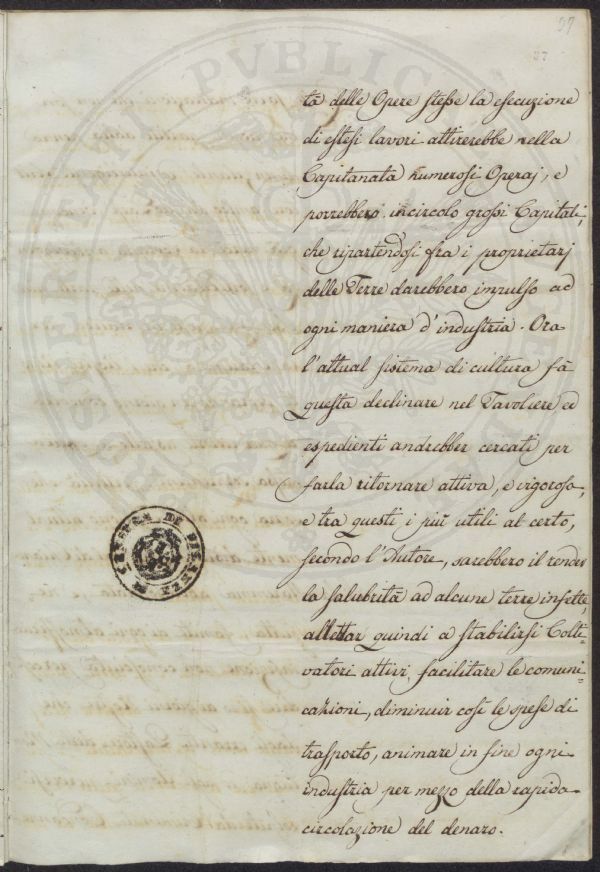 97
37
tà delle Opere stesse la esecuzione
di estesi lavori attirerebbe nella
Capitanata numerosi Operaj, e
porrebbero in circolo grossi Capitali,
che ripartendosi fra i proprietarj
delle Terre darebbero impulso ad
ogni maniera d'industria. Ora
l'attual sistema di cultura fà
questa declinare nel Tavoliere ed
espedienti andrebber cercati per
farla ritornare attiva, e vigorosa,
e tra questi i più utili al certo,
secondo l'Autore, sarebbero il render
la salubrità ad alcune terre infette,
allettar quindi a stabilirsi Colti=
vatori attivi, facilitare le comuni=
cazioni, diminuir così le spese di
trasporto, animare in fine ogni
industria per mezzo della rapida
circolazione del denaro.